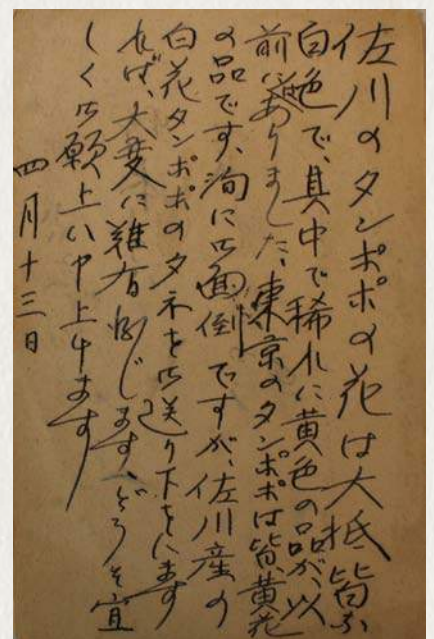 佐川のタンポポの花は大抵皆ふ
白色で、其中で稀れに黄色の品が、以
前にありました、東京のタンポポは皆、黄花
の品です、洵に御面倒ですが、佐川産の
白花タンポポのタネを御送り下さいます
れば、大変に難有存じます、どうぞ宜
しく御願上い申上ます
四月十三日